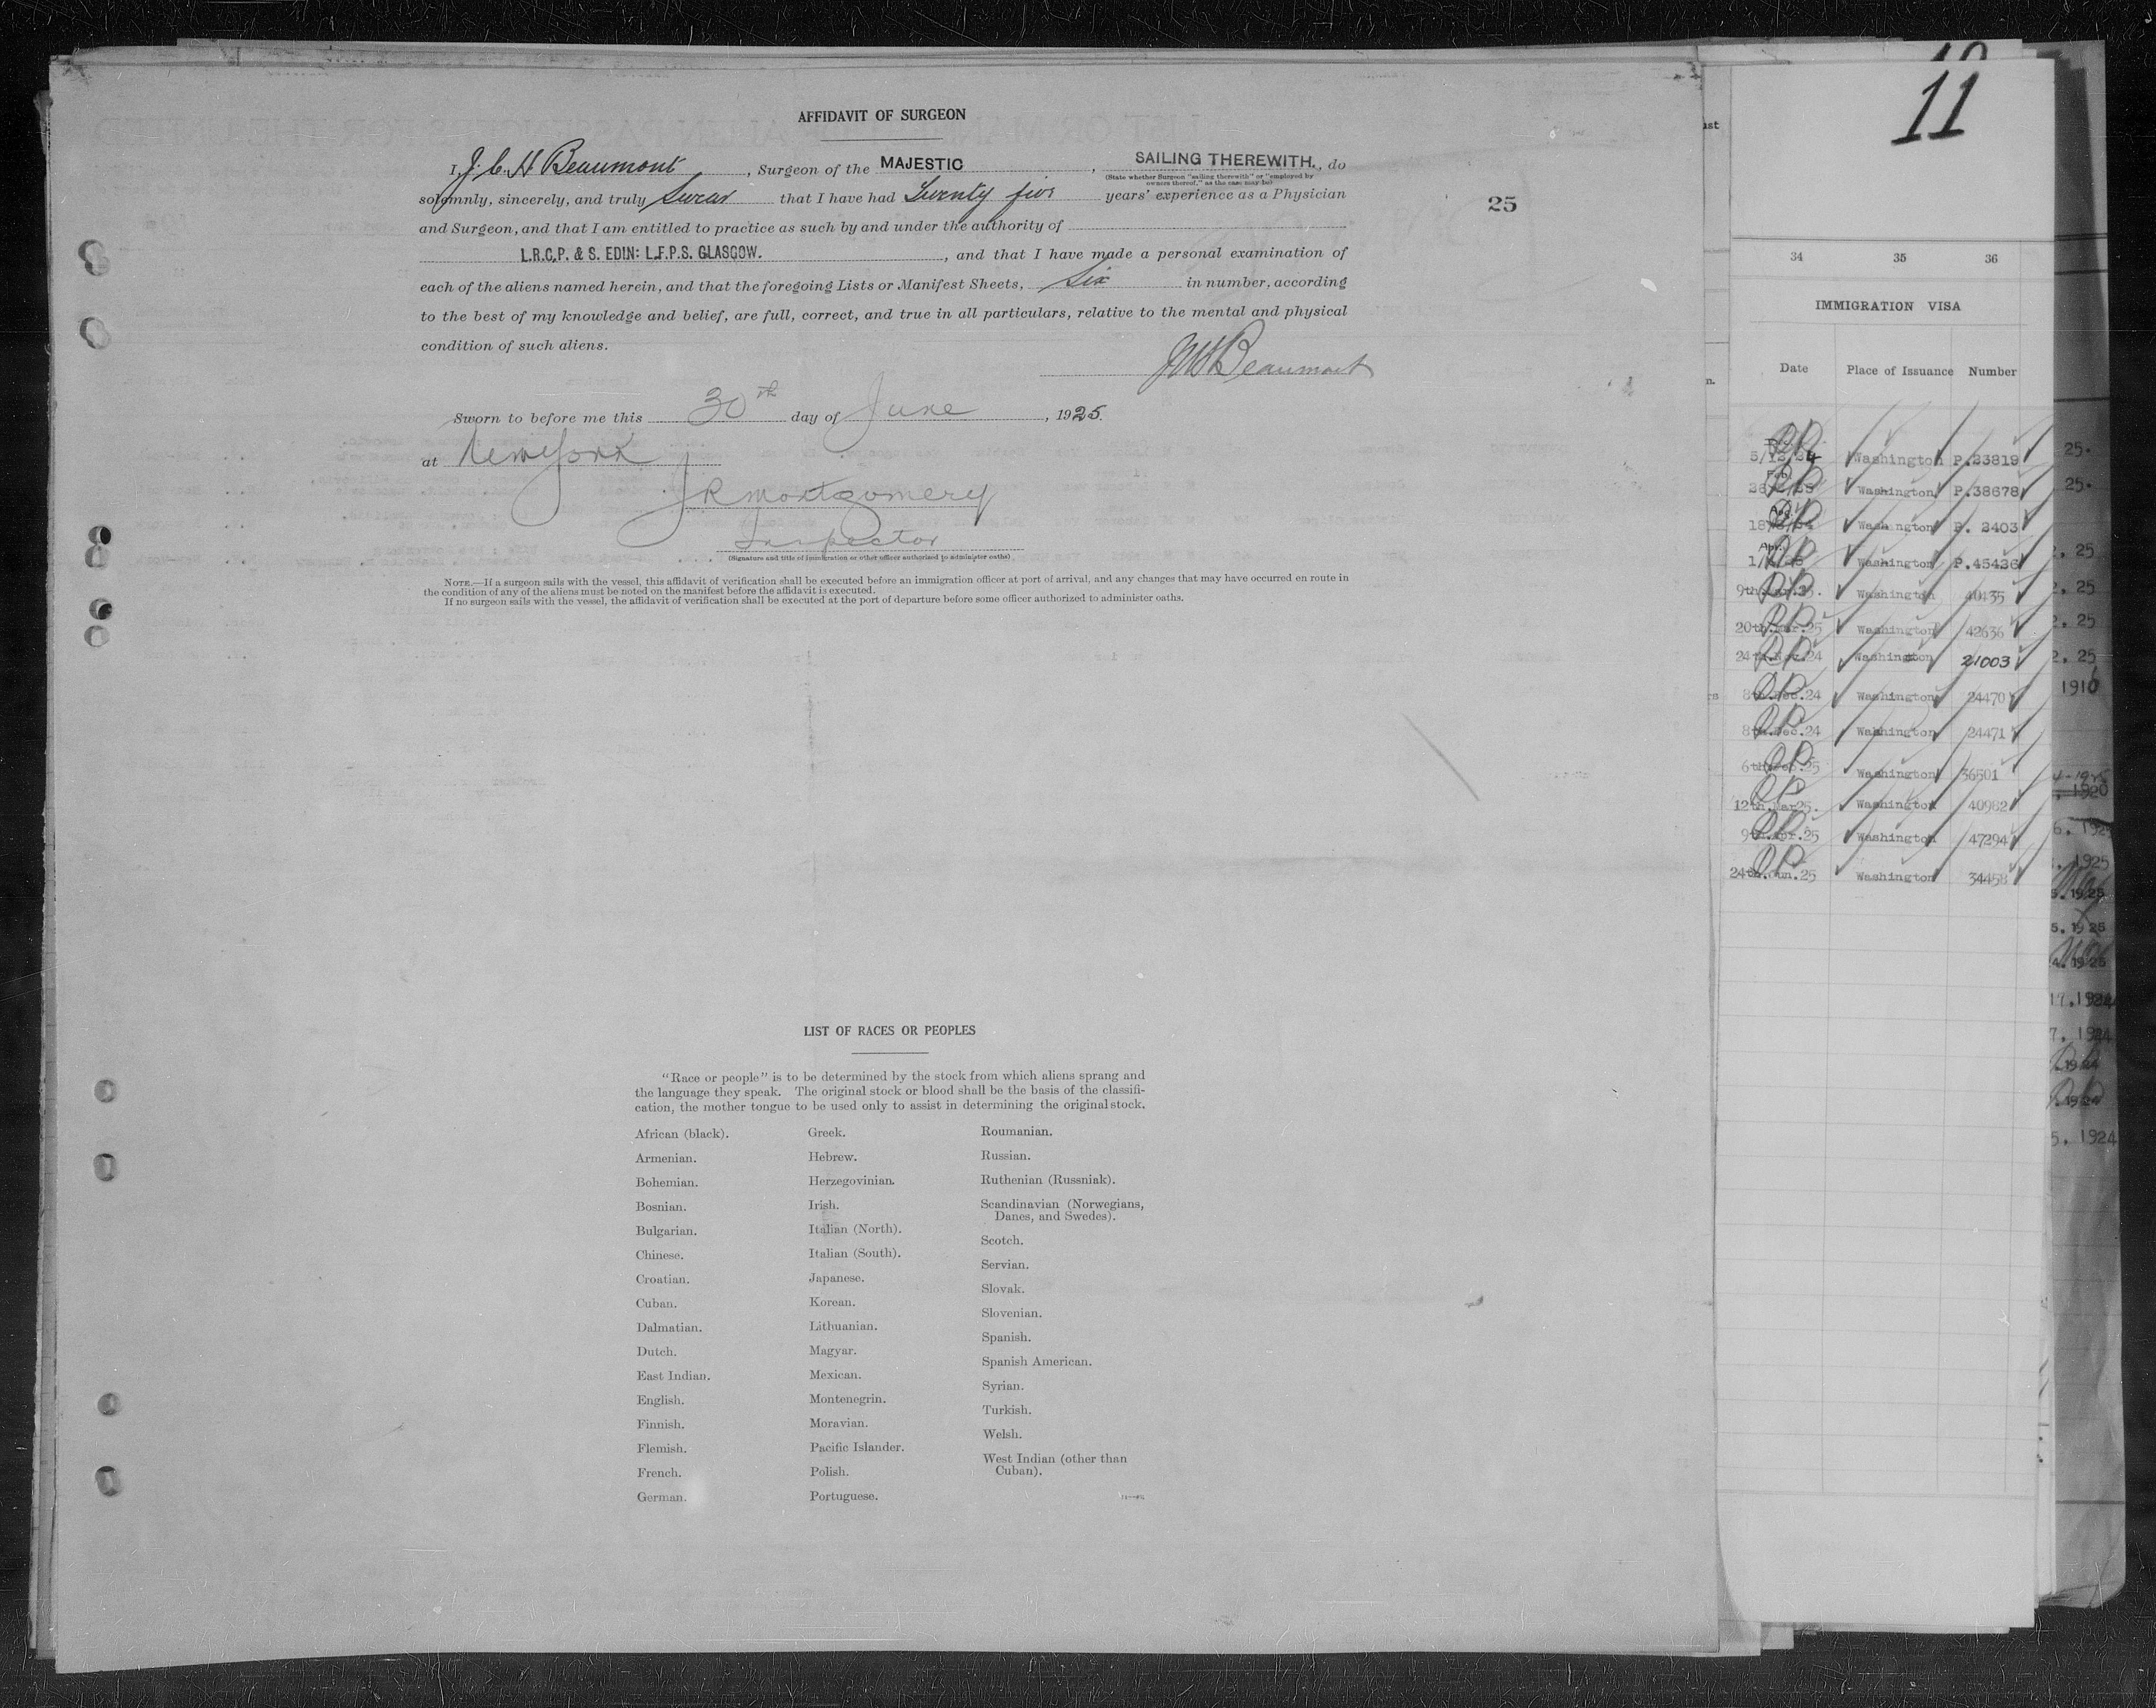 AFFIDAVIT OF SURGEON
I, J. C. H Beaumont, Surgeon of the MAJESTIC, SAILING THEREWITH., do
(State whether Surgeon "sailing therewith" or "employed by
owners thereof," as the case may be)
solemnly, sincerely, and truly Swear that I have had Twenty five years' experience as a Physician
and Surgeon, and that I am entitled to practice as such by and under the authority of
L.R.C.P. & S. EDIN: L.F.P.S. GLASGOW., and that I have made a personal examination of
each of the aliens named herein, and that the foregoing Lists or Manifest Sheets, Six in number, according
to the best of my knowledge and belief, are full, correct, and true in all particulars, relative to the mental and physical
condition of such aliens.
JCHBeaumont
Sworn to before me this 30th day of June, 1925.
at New York
J R Montgomery
Inspector
(Signature and title of immigration or other officer authorized to administer oaths)
NOTE.—If a surgeon sails with the vessel, this affidavit of verification shall be executed before an immigration officer at port of arrival, and any changes that may have occurred en route in
the condition of any of the aliens must be noted on the manifest before the affidavit is executed.
If no surgeon sails with the vessel, the affidavit of verification shall be executed at the port of departure before some officer authorized to administer oaths.
25
LIST OF RACES OR PEOPLES
"Race or people" is to be determined by the stock from which aliens sprang and
the language they speak. The original stock or blood shall be the basis of the classifi-
cation, the mother tongue to be used only to assist in determining the original stock.
African (black).
Armenian.
Bohemian.
Bosnian.
Bulgarian.
Chinese.
Croatian.
Cuban.
Dalmatian.
Dutch.
East Indian.
English.
Finnish.
Flemish.
French.
German.
Greek.
Hebrew.
Herzegovinian.
Irish.
Italian (North).
Italian (South).
Japanese.
Korean.
Lithuanian.
Magyar.
Mexican.
Montenegrin.
Moravian.
Pacific Islander.
Polish.
Portuguese.
Roumanian.
Russian.
Ruthenian (Russniak).
Scandinavian (Norwegians,
Danes, and Swedes).
Scotch.
Servian.
Slovak.
Slovenian.
Spanish.
Spanish American.
Syrian.
Turkish.
Welsh.
West Indian (other than
Cuban).
11
34 35 36
IMMIGRATION VISA
Date Place of Issuance Number
Washington P.23819
Washington P.38678
Washington P. 2403
Washington P.45426
Washington 40435
20th.Mar.25 Washington 42636
24th.Nov.24 Washington 21003
8th.Dec.24 Washington 24470
8th.Dec.24 Washington 24471
6th.Feb.25 Washington 36501
12th.Mar25. Washington 40982
9th.Apr.25 Washington 47294
24th.Jun.25 Washington 34458
25.
25.
2. 25
2. 25
2. 25
2. 25
1916
1920
6. 1925
1925
5. 1925
5. 1925
4. 1925
17. 1924
7. 1924
1924
1924
5. 1924